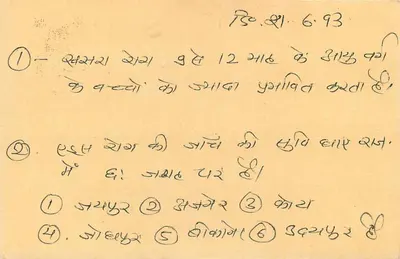 दि. 21.6.93
① - खसरा रोग 9 से 12 माह के आयु वर्ग
के बच्चों को ज्यादा प्रभावित करता है।
② एड्स रोग की जाँच की सुविधाए राज.
में छः जगह पर है।
① जयपुर ② अजमेर ③ कोटा
④. जोधपुर ⑤ बीकानेर ⑥ उदयपुर है